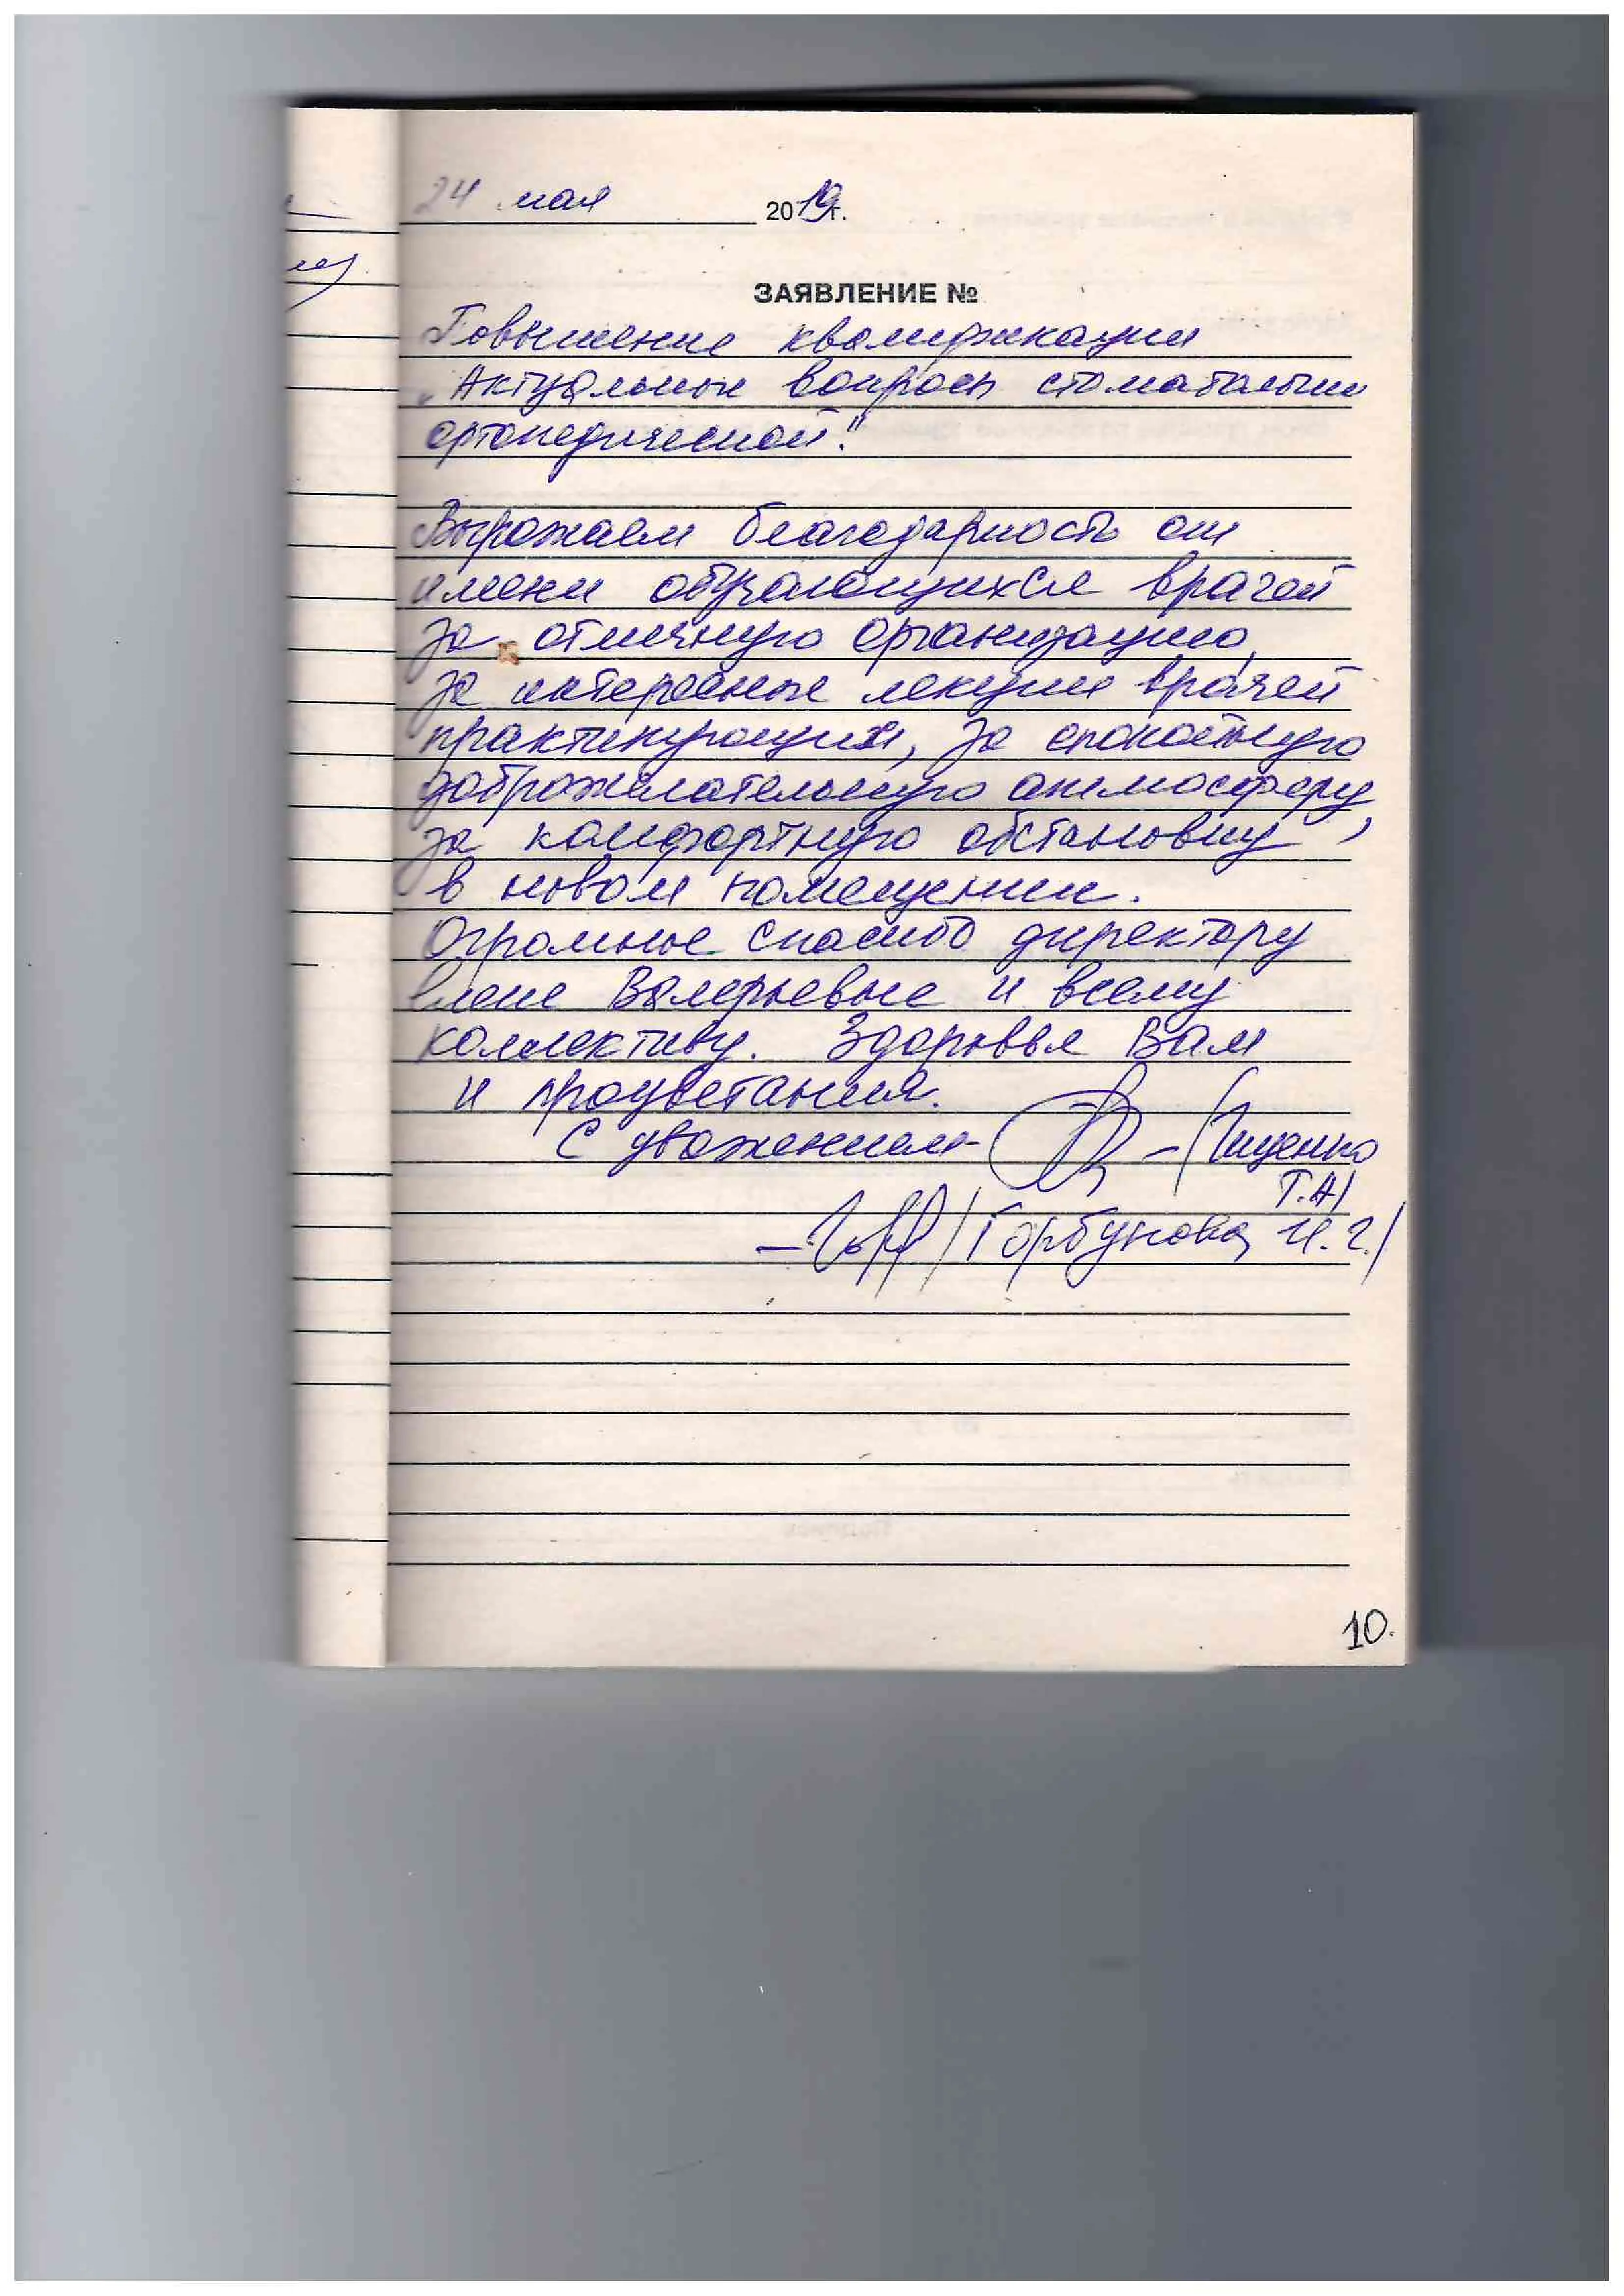 24 мая 2019г.
ЗАЯВЛЕНИЕ №
Повышение квалификации
„Актуальные вопросы стоматологии
ортопедической."
Выражаем благодарность от
имени обучающихся врачей
за отличную организацию,
за интересные лекции врачей
практикующих, за спокойную
доброжелательную атмосферу,
за комфортную обстановку
в новом помещении.
Огромное спасибо директору
Елене Валерьевне и всему
коллективу. Здоровья Вам
и процветания.
С уважением -
Т.А/
/Горбунова И.Г./
10.